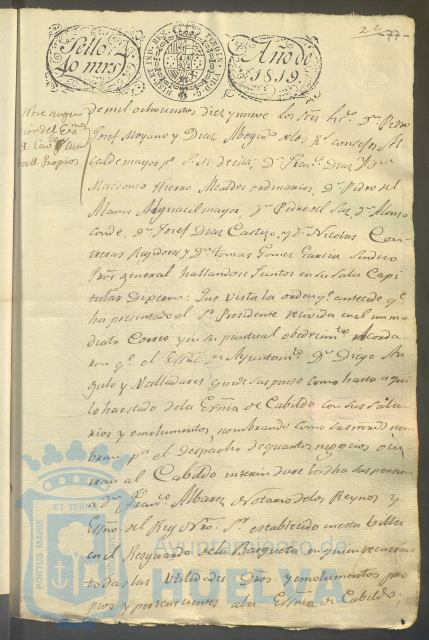 22
77
Sello
40 mrs
Año de
1819.
de mil ochocientos diez y nueve los Sres. Lic.º Dn Pedro
Josef Moyano y Diaz Abogado de los Rs. consejos Al
calde mayor pr S. M. de ella, Dn Franco Diaz y Dn
Hierro Alcaldes ordinarios, Dn Pedro del
Alguacil mayor, Dn Pedro del Dn Alonso
Conde, Dn Josef Diaz Castizo, y Dn Nicolas Con
treras Regidores y Dn tomas Gomez Garcia Sindico
Pror general hallandose juntos en su Sala Capi
tular Dijeron: Que vista la orden qe antecede qe
ha presentado el Sr Presidente recivida en el inme
diato Correo y en su puntual obedecimto Acorda
ron qe el Essno de Ayuntamto Dn Diego An
gulo y Valladares quede suspenso como hasta aqui
lo ha estado de la Essnia de Cabildo con sus sala
rios y emolumentos, nombrando como sus mrds nom
bran pa el despacho de quantos negocios ocu
rran al Cabildo interin dure la dha suspension
a Dn Franco Albarez Notario de los Reynos y
Essno del Rey Nro. Sr establecido en esta Villa
en el Resguardo de la Barqueta en quien recaeran
todas las Utilidades Dros. y emolumentos pro
pios y pertenecientes a la Essnia de Cabildo,
Sobre
cion del Essno
de Cavdo
de Propios
PORTUS MARIS ET TERRAE
Ayuntamiento de
HUELVA